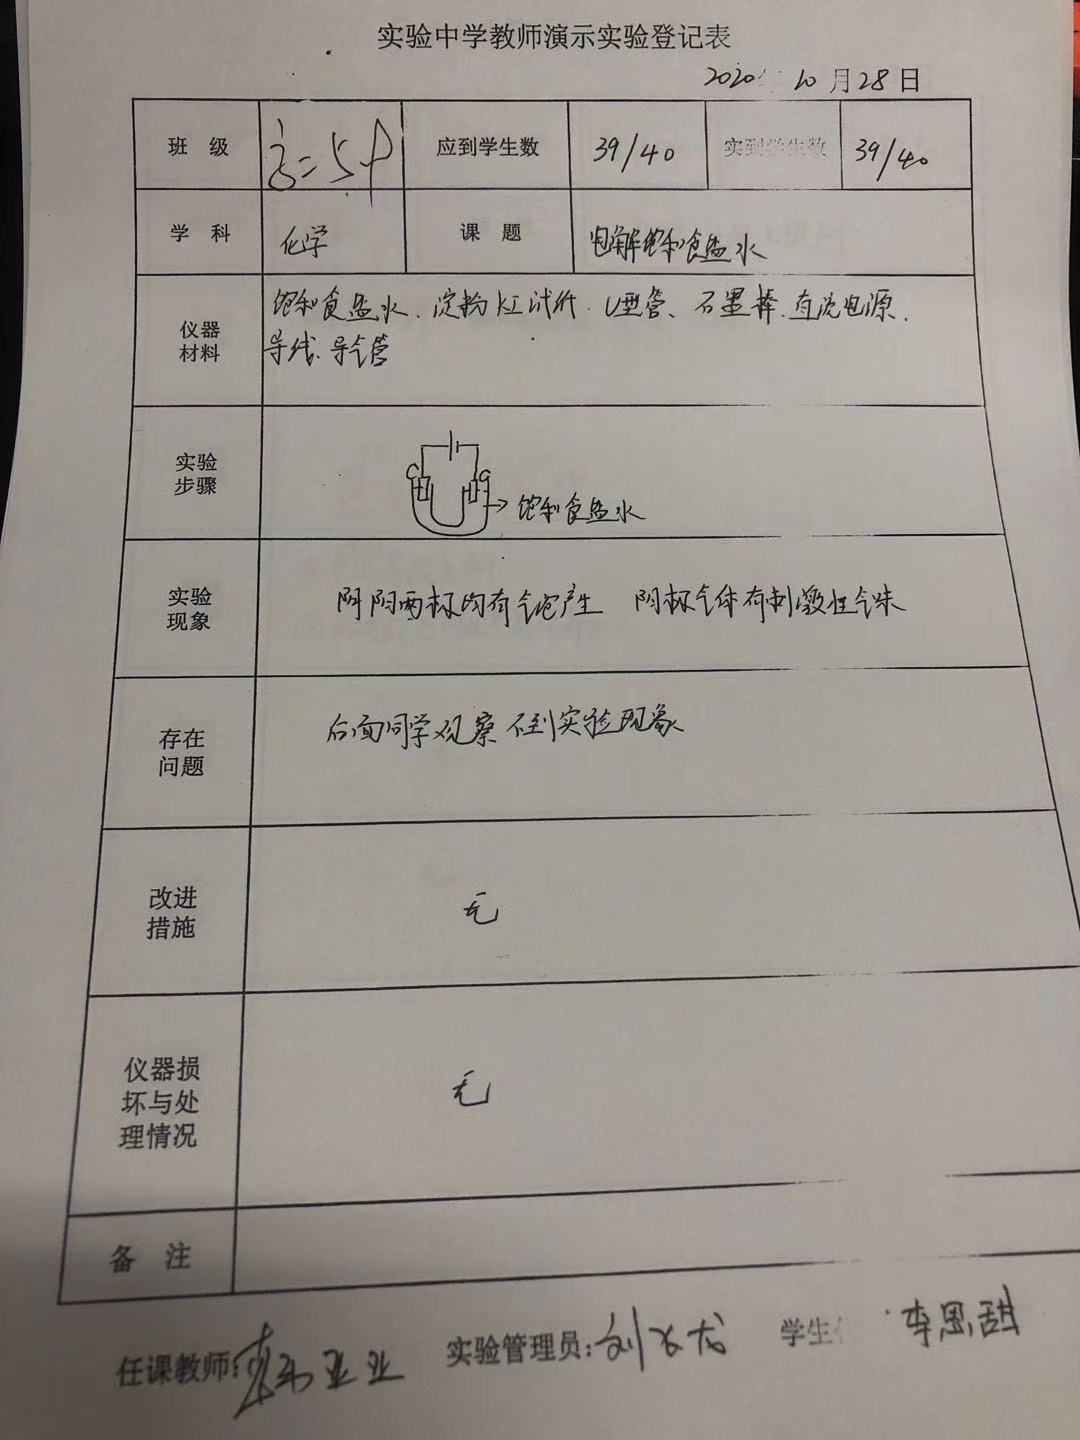 实验中学教师演示实验登记表
2020年 10月28日
班 级 高二 应到学生数 39/40 实到学生数 39/40
学 科 化学 课 题 电解饱和食盐水
仪器材料 饱和食盐水、淀粉KI试纸、U型管、石墨棒、直流电源、
导线、导气管
实验步骤
C C
→饱和食盐水
实验现象 阴阳两极均有气泡产生 阳极气体有刺激性气味
存在问题 后面同学观察不到实验现象
改进措施 无
仪器损坏与处理情况 无
备 注
任课教师: 实验管理员: 刘文龙 学生 李思甜